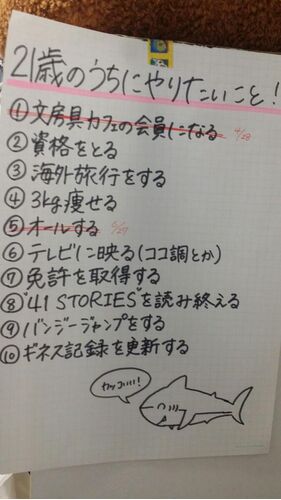 21歳のうちにやりたいこと!
①文房具カフェの会員になる 4/28
②資格をとる
③海外旅行をする
④3kg痩せる
⑤オールする 6/27
⑥テレビに映る(ココ調とか)
⑦免許を取得する
⑧"41 STORIES"を読み終える
⑨バンジージャンプをする
⑩ギネス記録を更新する
カッコいい!